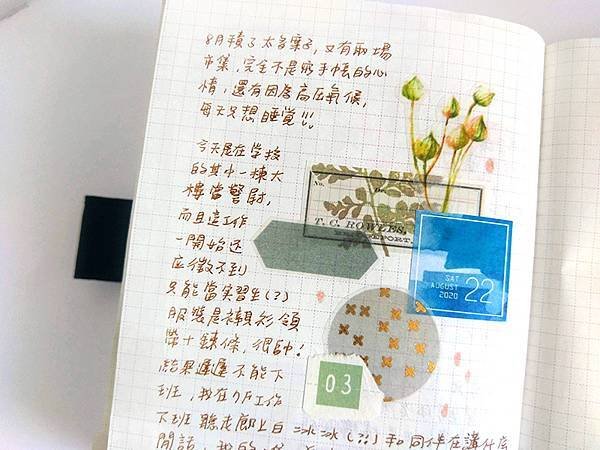 8月積了太多案子，又有兩場
市集，完全不是寫手帳的心
情，還有因為高压氣候，
每天只想睡覺!!
今天是在学校
的其中一棟大
樓當警尉，
而且這工作
一開始还
应徵不到
只能當実習生(?)
服裝是襯衫領
帶+鍊條，很帥!
結果遲遲不能下
班，我在7F工作
下班 聽走廊上白 冰冰(?!) 和同伴在講什麼
閒話，我的
No.
T. C. ROWLES,
PORT.
SAT
AUGUST
2020
22
03